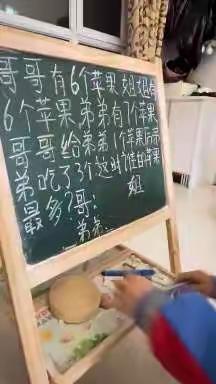 哥哥有6个苹果姐姐有
6个苹果弟弟有7个苹果
哥哥给弟弟1个苹果后弟
弟吃了3个这时谁的苹果
最多?哥:
姐
弟弟: